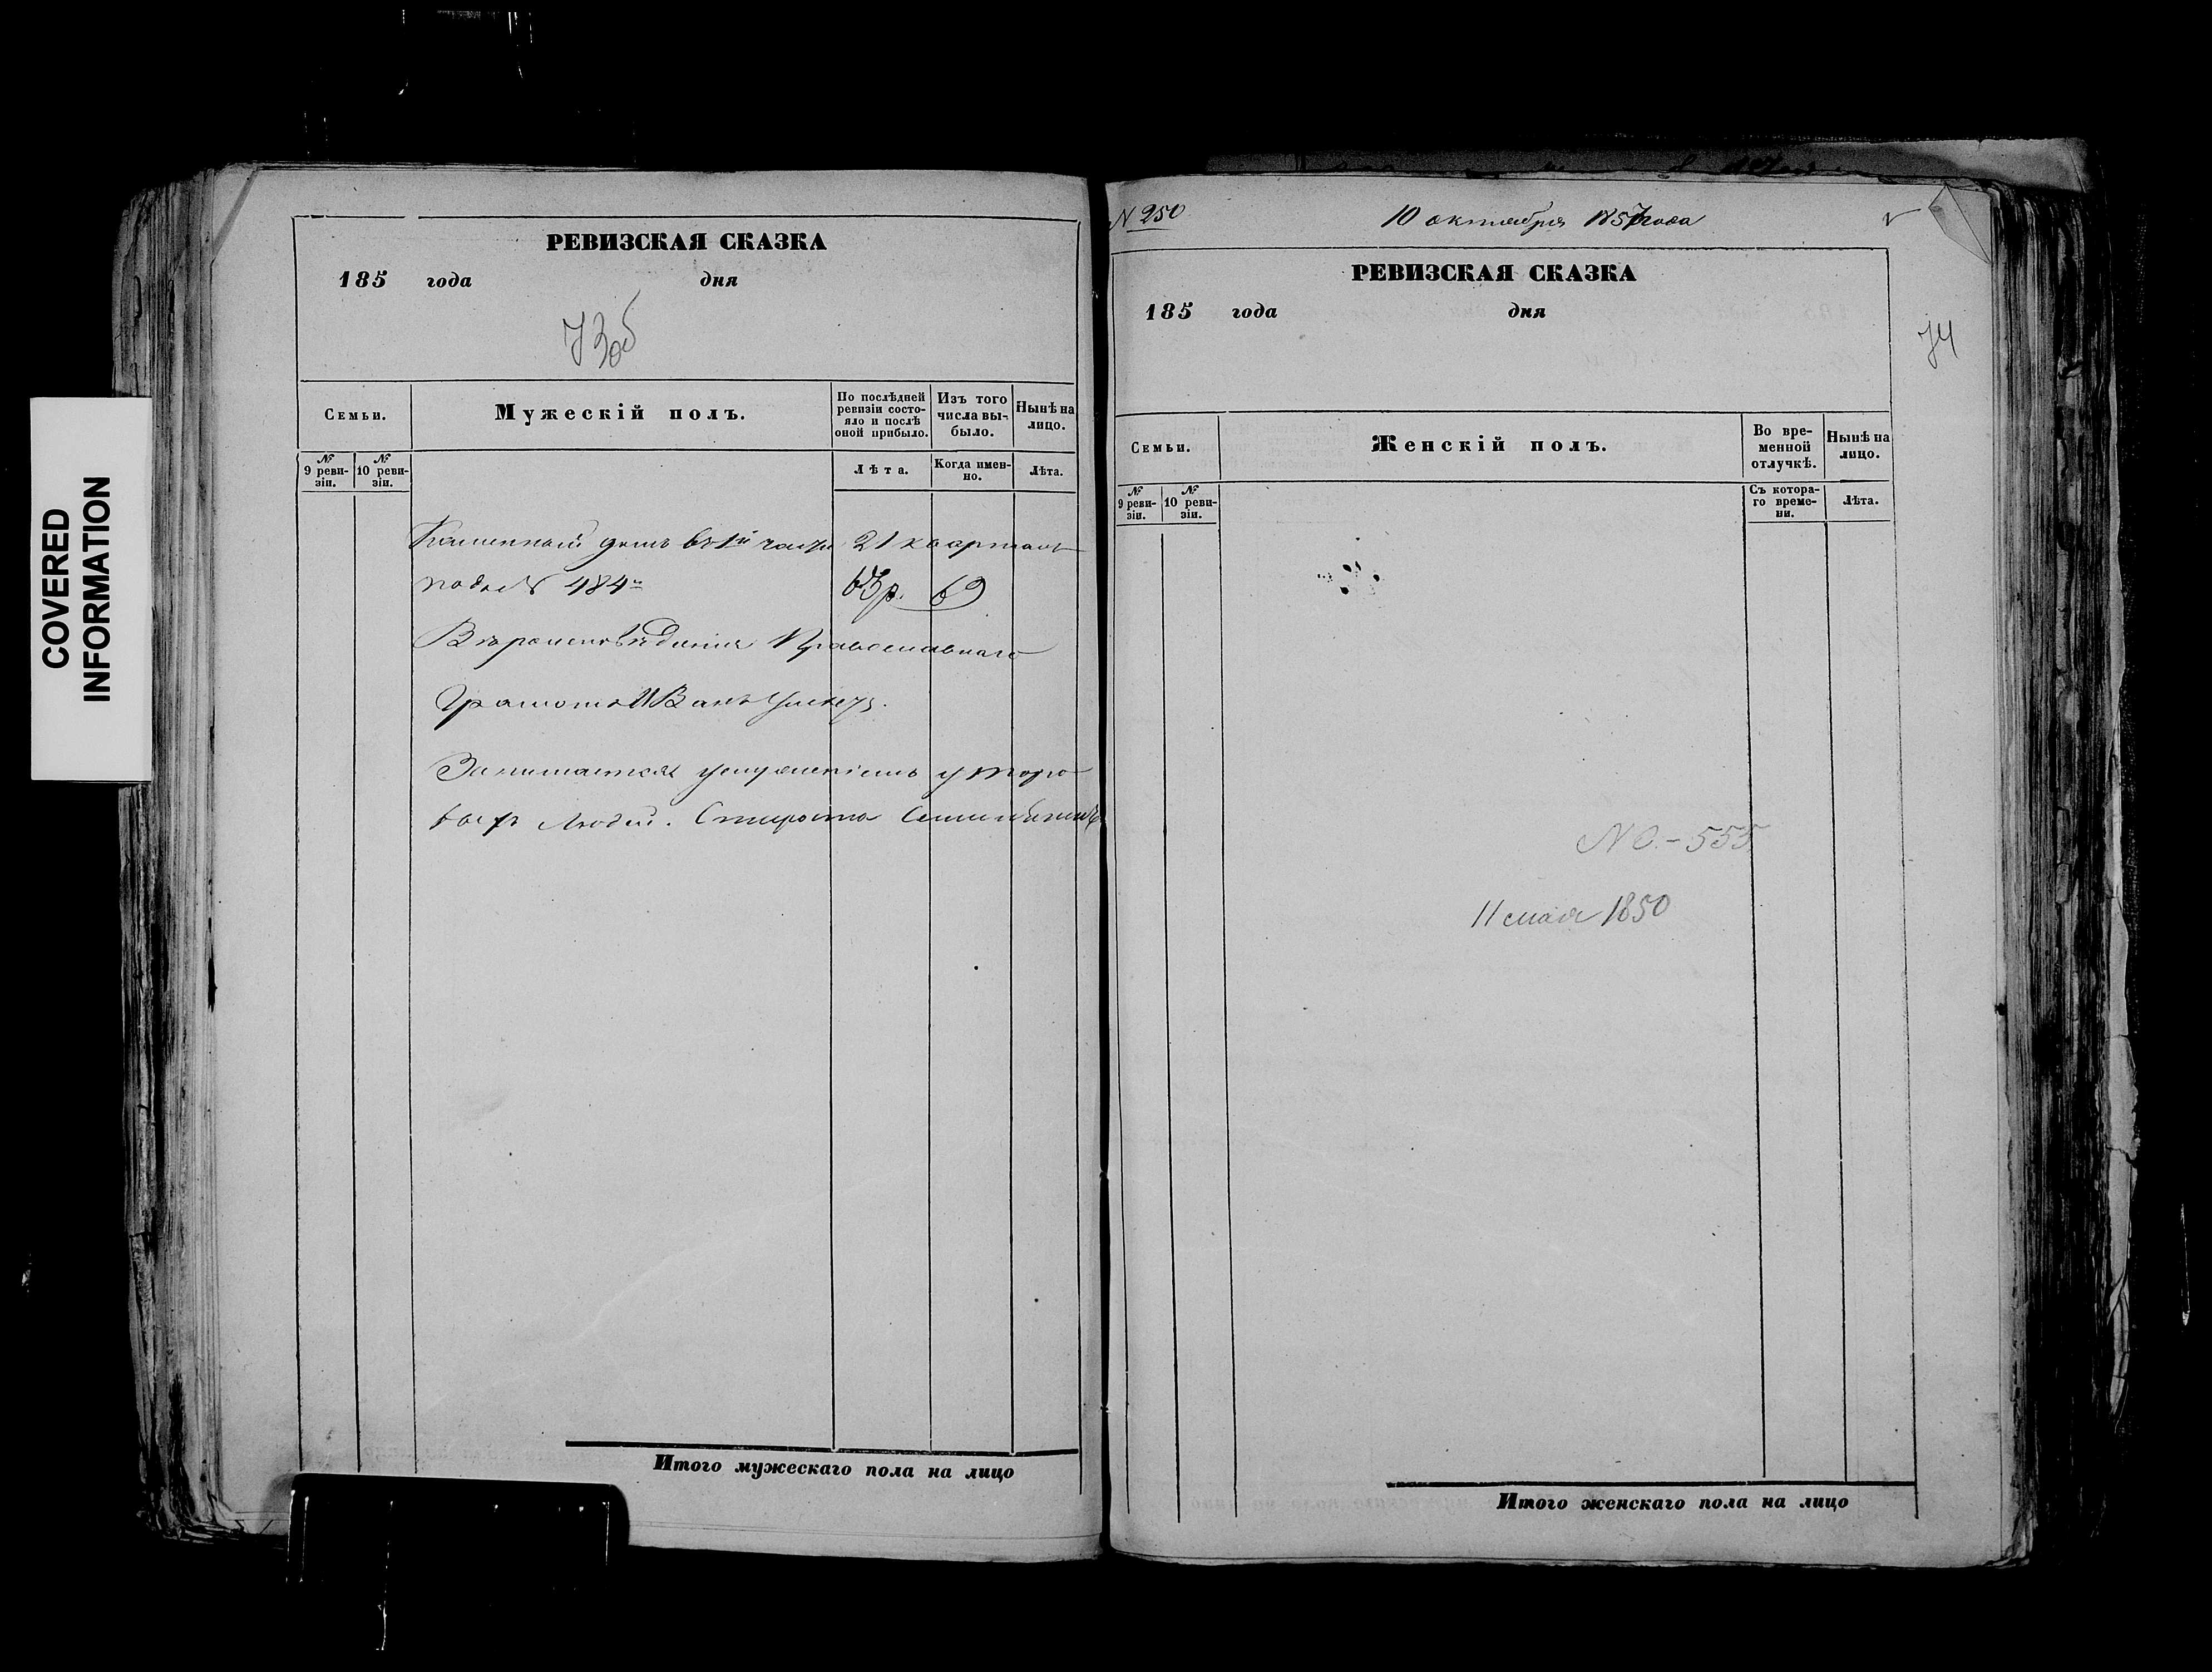 COVERED
INFORMATION
РЕВИЗСКАЯ СКАЗКА
185 года дня
73об
Семьи.
Мужескій полъ.
По послѣдней
ревизіи состо-
яло и послѣ
оной прибыло.
Изъ того
числа вы-
было.
Нынѣ на
лицо.
№
9 реви-
зіи.
№
10 реви-
зіи.
Лѣта.
Когда имен-
но.
Лѣта.
Каменный домъ въ 1й части 21 квартала
подъ № 484м
Вѣроисповѣданія Православнаго
Грамотѣ Иванъ умѣетъ.
Занимается услуженіемъ у торго-
выхъ людей. Староста
Итого мужескаго пола на лицо
N 250
10 октября 1857 года
РЕВИЗСКАЯ СКАЗКА
185 года дня
74
Семьи.
Женскій полъ.
Во вре-
менной
отлучкѣ.
Нынѣ на
лицо.
№
9 реви-
зіи.
№
10 реви-
зіи.
Съ котора-
го време-
ни.
Лѣта.
555
11 мая 1850
Итого женскаго пола на лицо